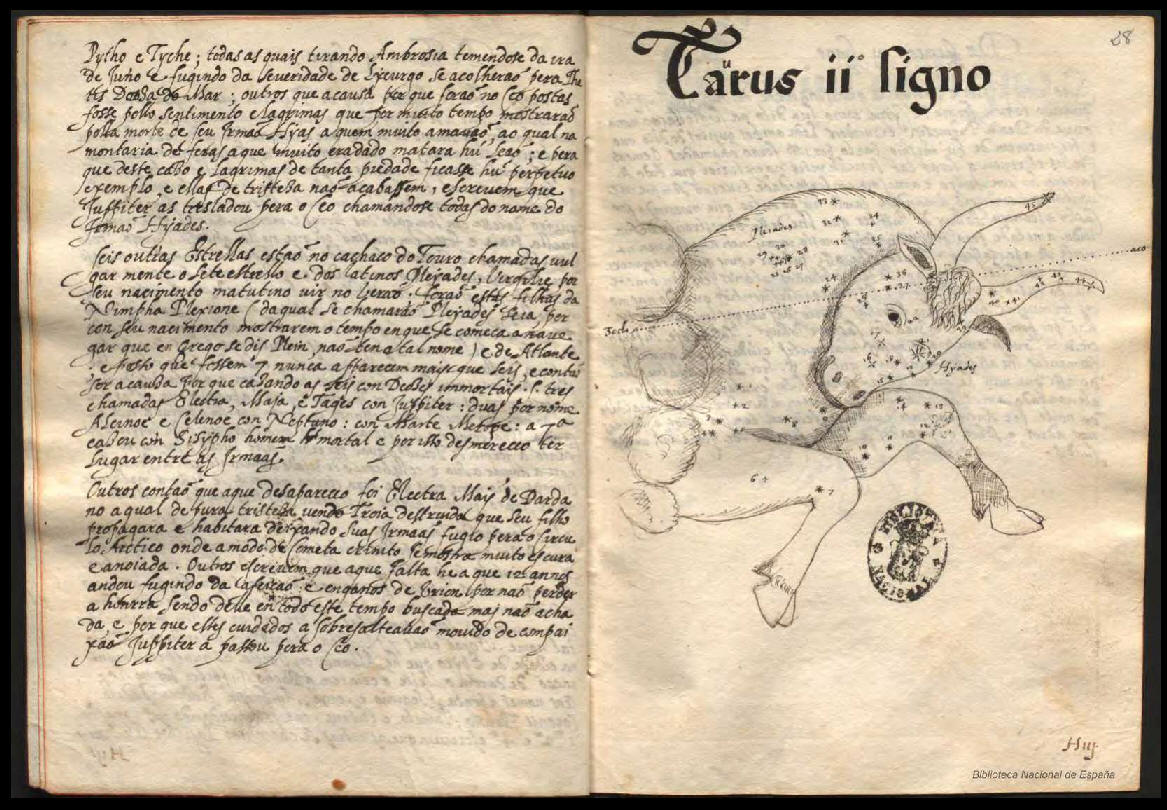 Pytho e Tyche; todas as quais tirando Ambrosia temendose da ira
de Juno e fugindo da severidade de Lycurgo se acolherão pera The
tis Deosa do Mar; outros que a causa por que forão no Ceo postas
foste pello sentimento e lagrimas que por muito tempo mostrarão
polla morte de seu Irmão Hyas a quem muito amavão, ao qual na
montaria de feras a que muito era dado matara hū Leão; e pera
que deste caso e lagrimas de tanta piedade ficasse hū perpetuo
exemplo, e ellas de tristeza não acabassem, escrevem que
Juppiter as tresladou pera o Ceo chamandose todas do nome do
Irmão Hyades.
Seis outras Estrellas estão no cachaço do Touro chamadas vul
garmente o Sete estrello e dos latinos Pleyades, Virgilie por
seu nacimento matutino vir no Verão. forão estas filhas da
Nimpha Plexione (da qual se chamarão Pleyades seia por
con seu nacimento mostrarem o tempo en que se começa a nave
gar que en Grego se dis Plein, não tem a tal nome) e de Atlante
e posto que fossem 7 nunca apparecem mais que seis, e contão
ser a causa por que casando as seis con Deoses immortais .s. tres
chamadas Electra, Maia, e Tages con Juppiter: duas por nome
Alcinoe e Celenoe con Neptuno: con Marte Metrope: a 7ª
casou con Sisypho homem mortal e por isso desmereceo ter
lugar entre as Irmaãs.
Outros contão que a que desapareceo foi Electra Mãi de Darda
no a qual de pura tristeza vendo Troia destruida que seu filho
propagara e habitara deixando suas Irmaãs fugio pera o circu
lo Arctico onde a modo de Cometa crinito se mostra muito escura
e anoiada. Outros escrevem que a que falta he a que 12 annos
andou fugindo da afeição e enganos de Orion por não perder
a honrra sendo delle en todo este tempo buscada mas não acha
da, e por que estes cuidados a sobresalteavão movido de compai
xão Juppiter a passou pera o Ceo.
28
Taurus ii signo
Pleyades
Hyades
Huj
Biblioteca Nacional de España